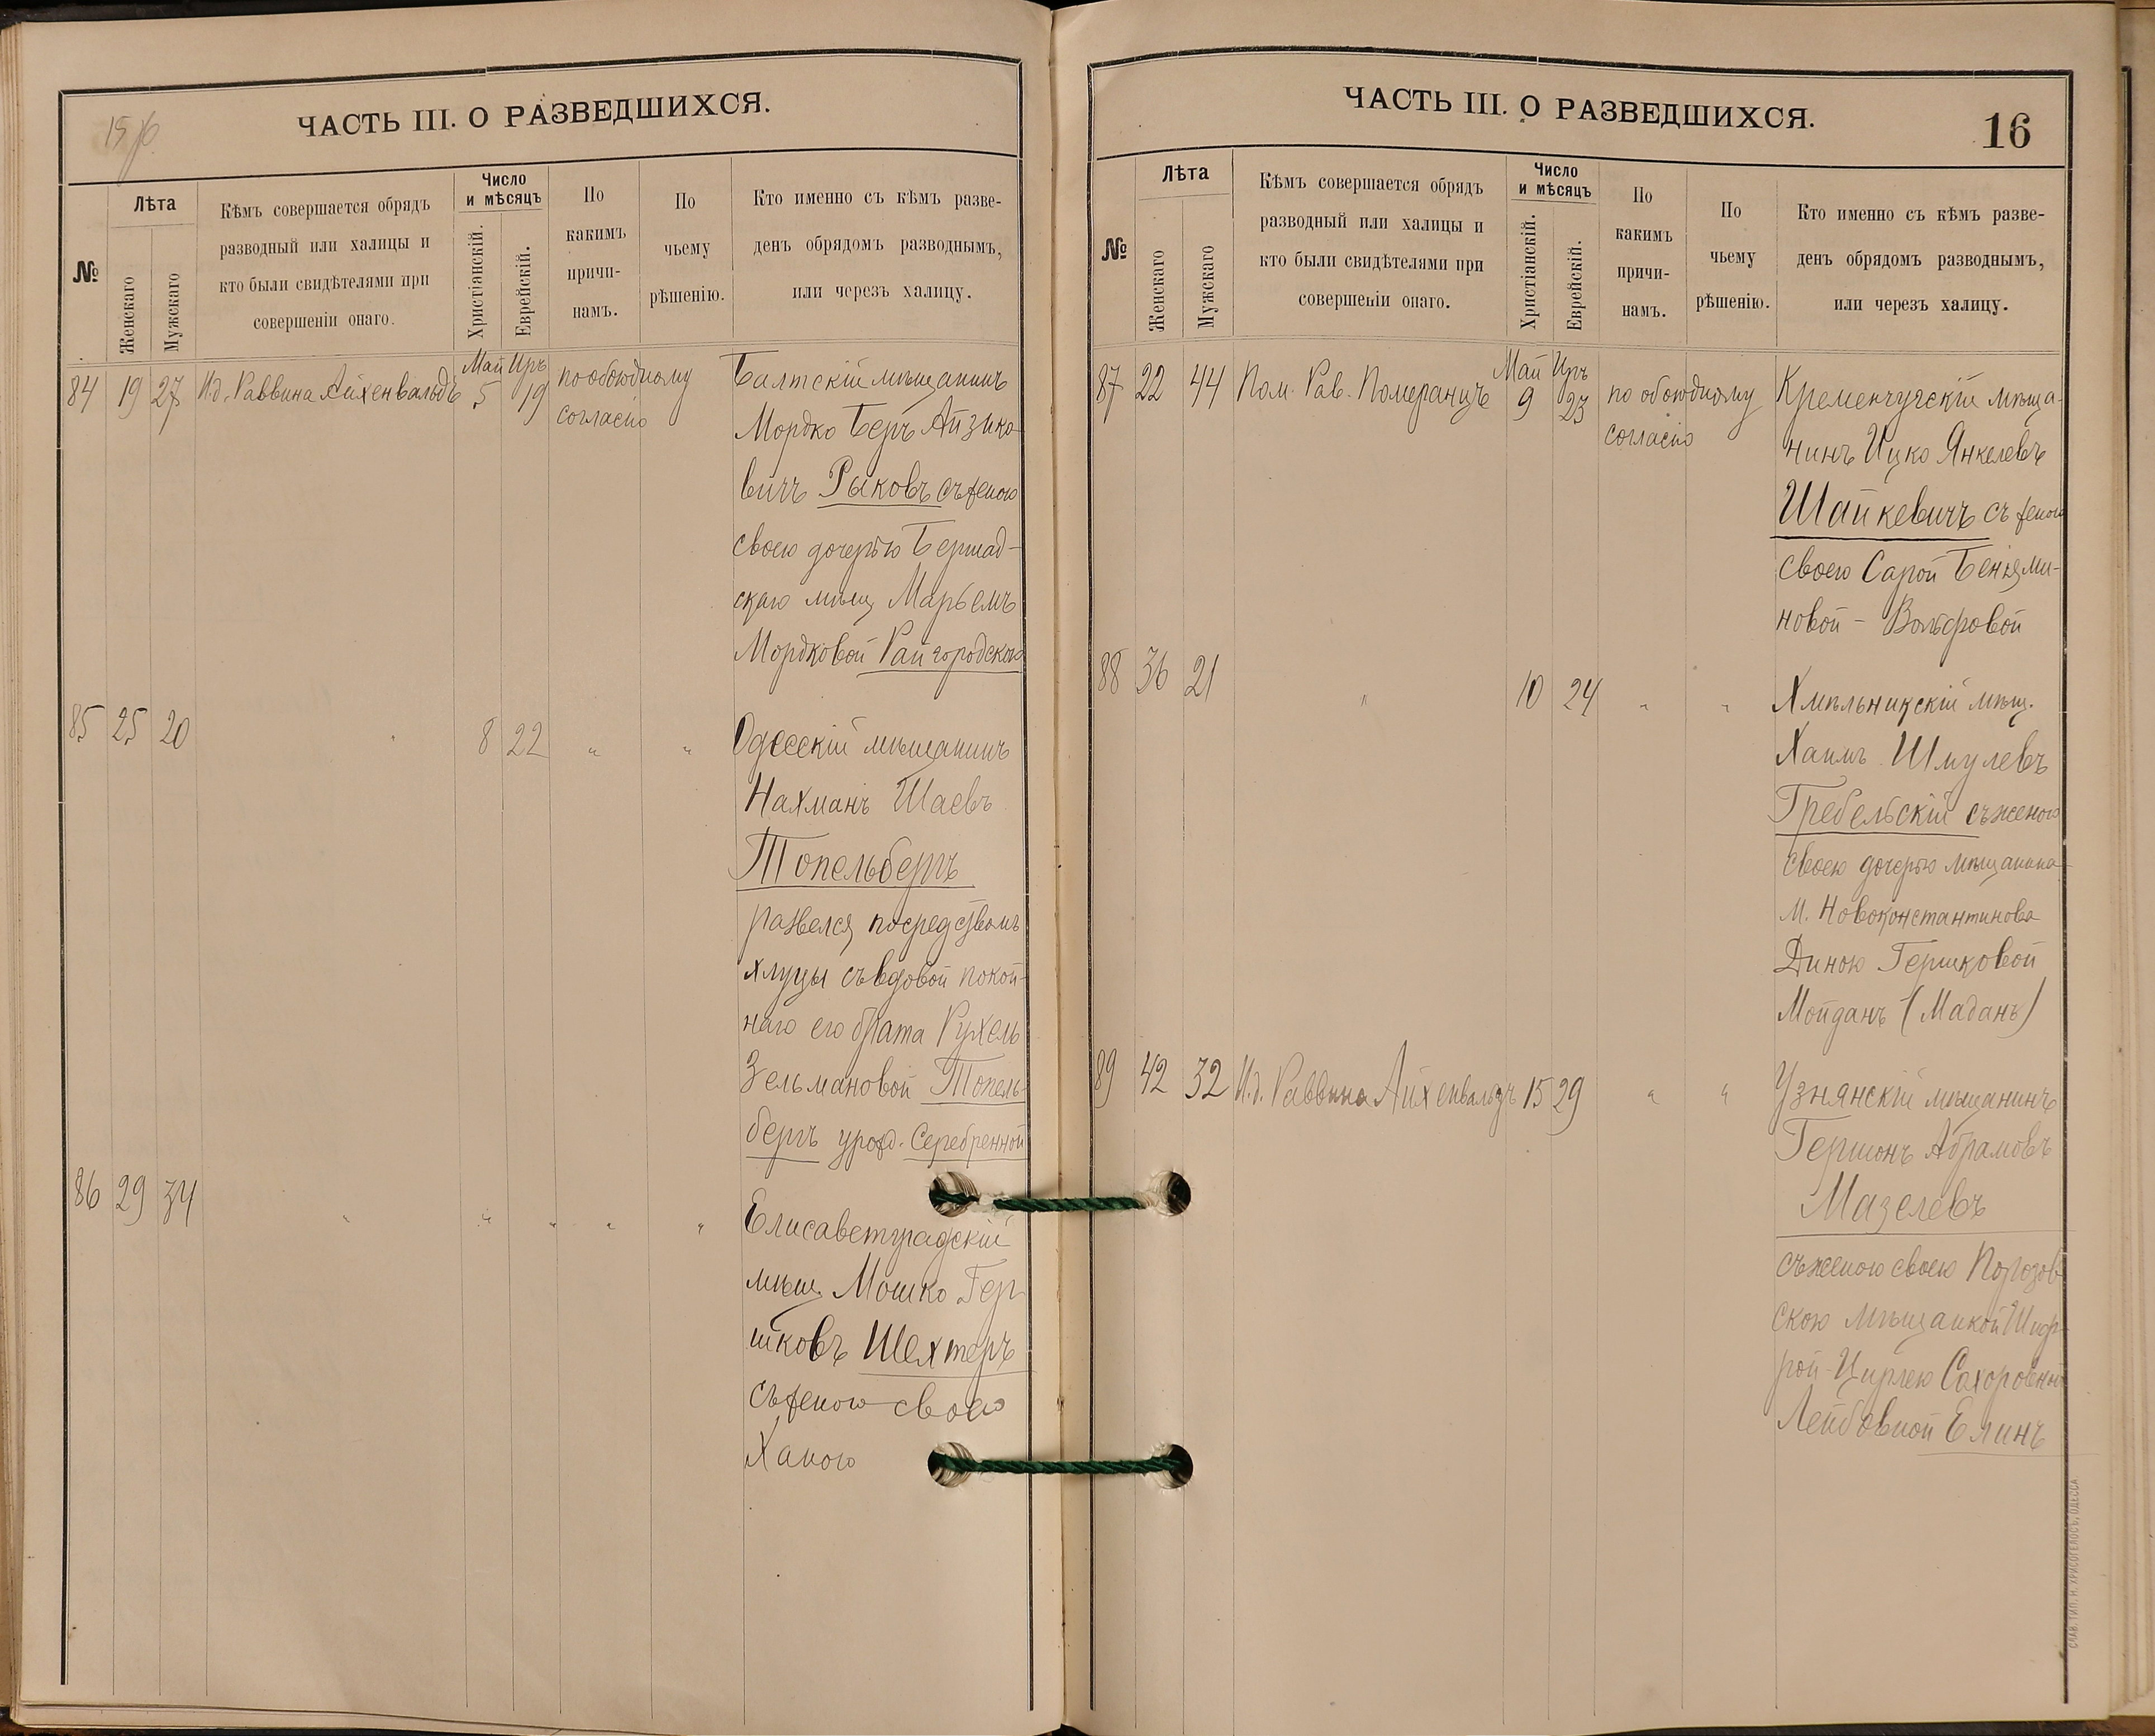 15 об.
ЧАСТЬ III. О РАЗВЕДШИХСЯ.
№
Лѣта
Женскаго
Мужскаго
Кѣмъ совершается обрядъ
разводный или халицы и
кто были свидѣтелями при
совершеніи онаго.
Число
и мѣсяцъ
Христіанскій.
Еврейскій.
По
какимъ
причи-
намъ.
По
чьему
рѣшенію.
Кто именно съ кѣмъ разве-
денъ обрядомъ разводнымъ,
или черезъ халицу.
Май Иръ
84 19 27 И.д. Раввина Айхенвальдъ 5 19 по обоюдному
согласію
Балтскій мѣщанинъ
Мордко Беръ Айзико
вичъ Рыковъ съ женою
своею дочерью Бершад-
скаго мѣщ Марьемъ
Мордковой Райгородскою
85 25 20 " 8 22 " "
Одесскій мѣщанинъ
Нахманъ Шаевъ
Топельбергъ
развелся посредствомъ
хлуцы съ вдовой покой-
наго его брата Рухель
Зельмановой Топель-
бергъ урожд. Серебренной
86 29 34 " " " " "
Елисаветградскій
мѣщ Мошко Гер
шковъ Шехтеръ
съ женою своею
Ханою
ЧАСТЬ III. О РАЗВЕДШИХСЯ.
16
№
Лѣта
Женскаго
Мужскаго
Кѣмъ совершается обрядъ
разводный или халицы и
кто были свидѣтелями при
совершеніи онаго.
Число
и мѣсяцъ
Христіанскій.
Еврейскій.
По
какимъ
причи-
намъ.
По
чьему
рѣшенію.
Кто именно съ кѣмъ разве-
денъ обрядомъ разводнымъ,
или черезъ халицу.
Май Иръ
87 22 44 Пом. Рав. Померанцъ 9 23 по обоюдному
согласію
Кременчугскій мѣща-
нинъ Ицко Янкелевъ
Шайкевичъ съ женою
своею Сарой Беньями-
новой - Вольфовой
88 36 21 " 10 24 " "
Хмѣльникскій мѣщ.
Хаимъ Шмулевъ
Гребельскій съ женою
своею дочерью мѣщанина
М. Новоконстантинова
Диною Гершковой
Мойданъ (Маданъ)
89 42 32 И.д. Раввина Айхенвальдъ 15 29 " "
Узнянскій мѣщанинъ
Гершонъ Абрамовъ
Мазелевъ
съ женою своею Порозов
скою мѣщанкой Шиф-
рой-Цирлею
Лейбовной Елинъ
СЛАВ. ТИП. Н. ХРИСОГЕЛОСЪ, ОДЕССА.